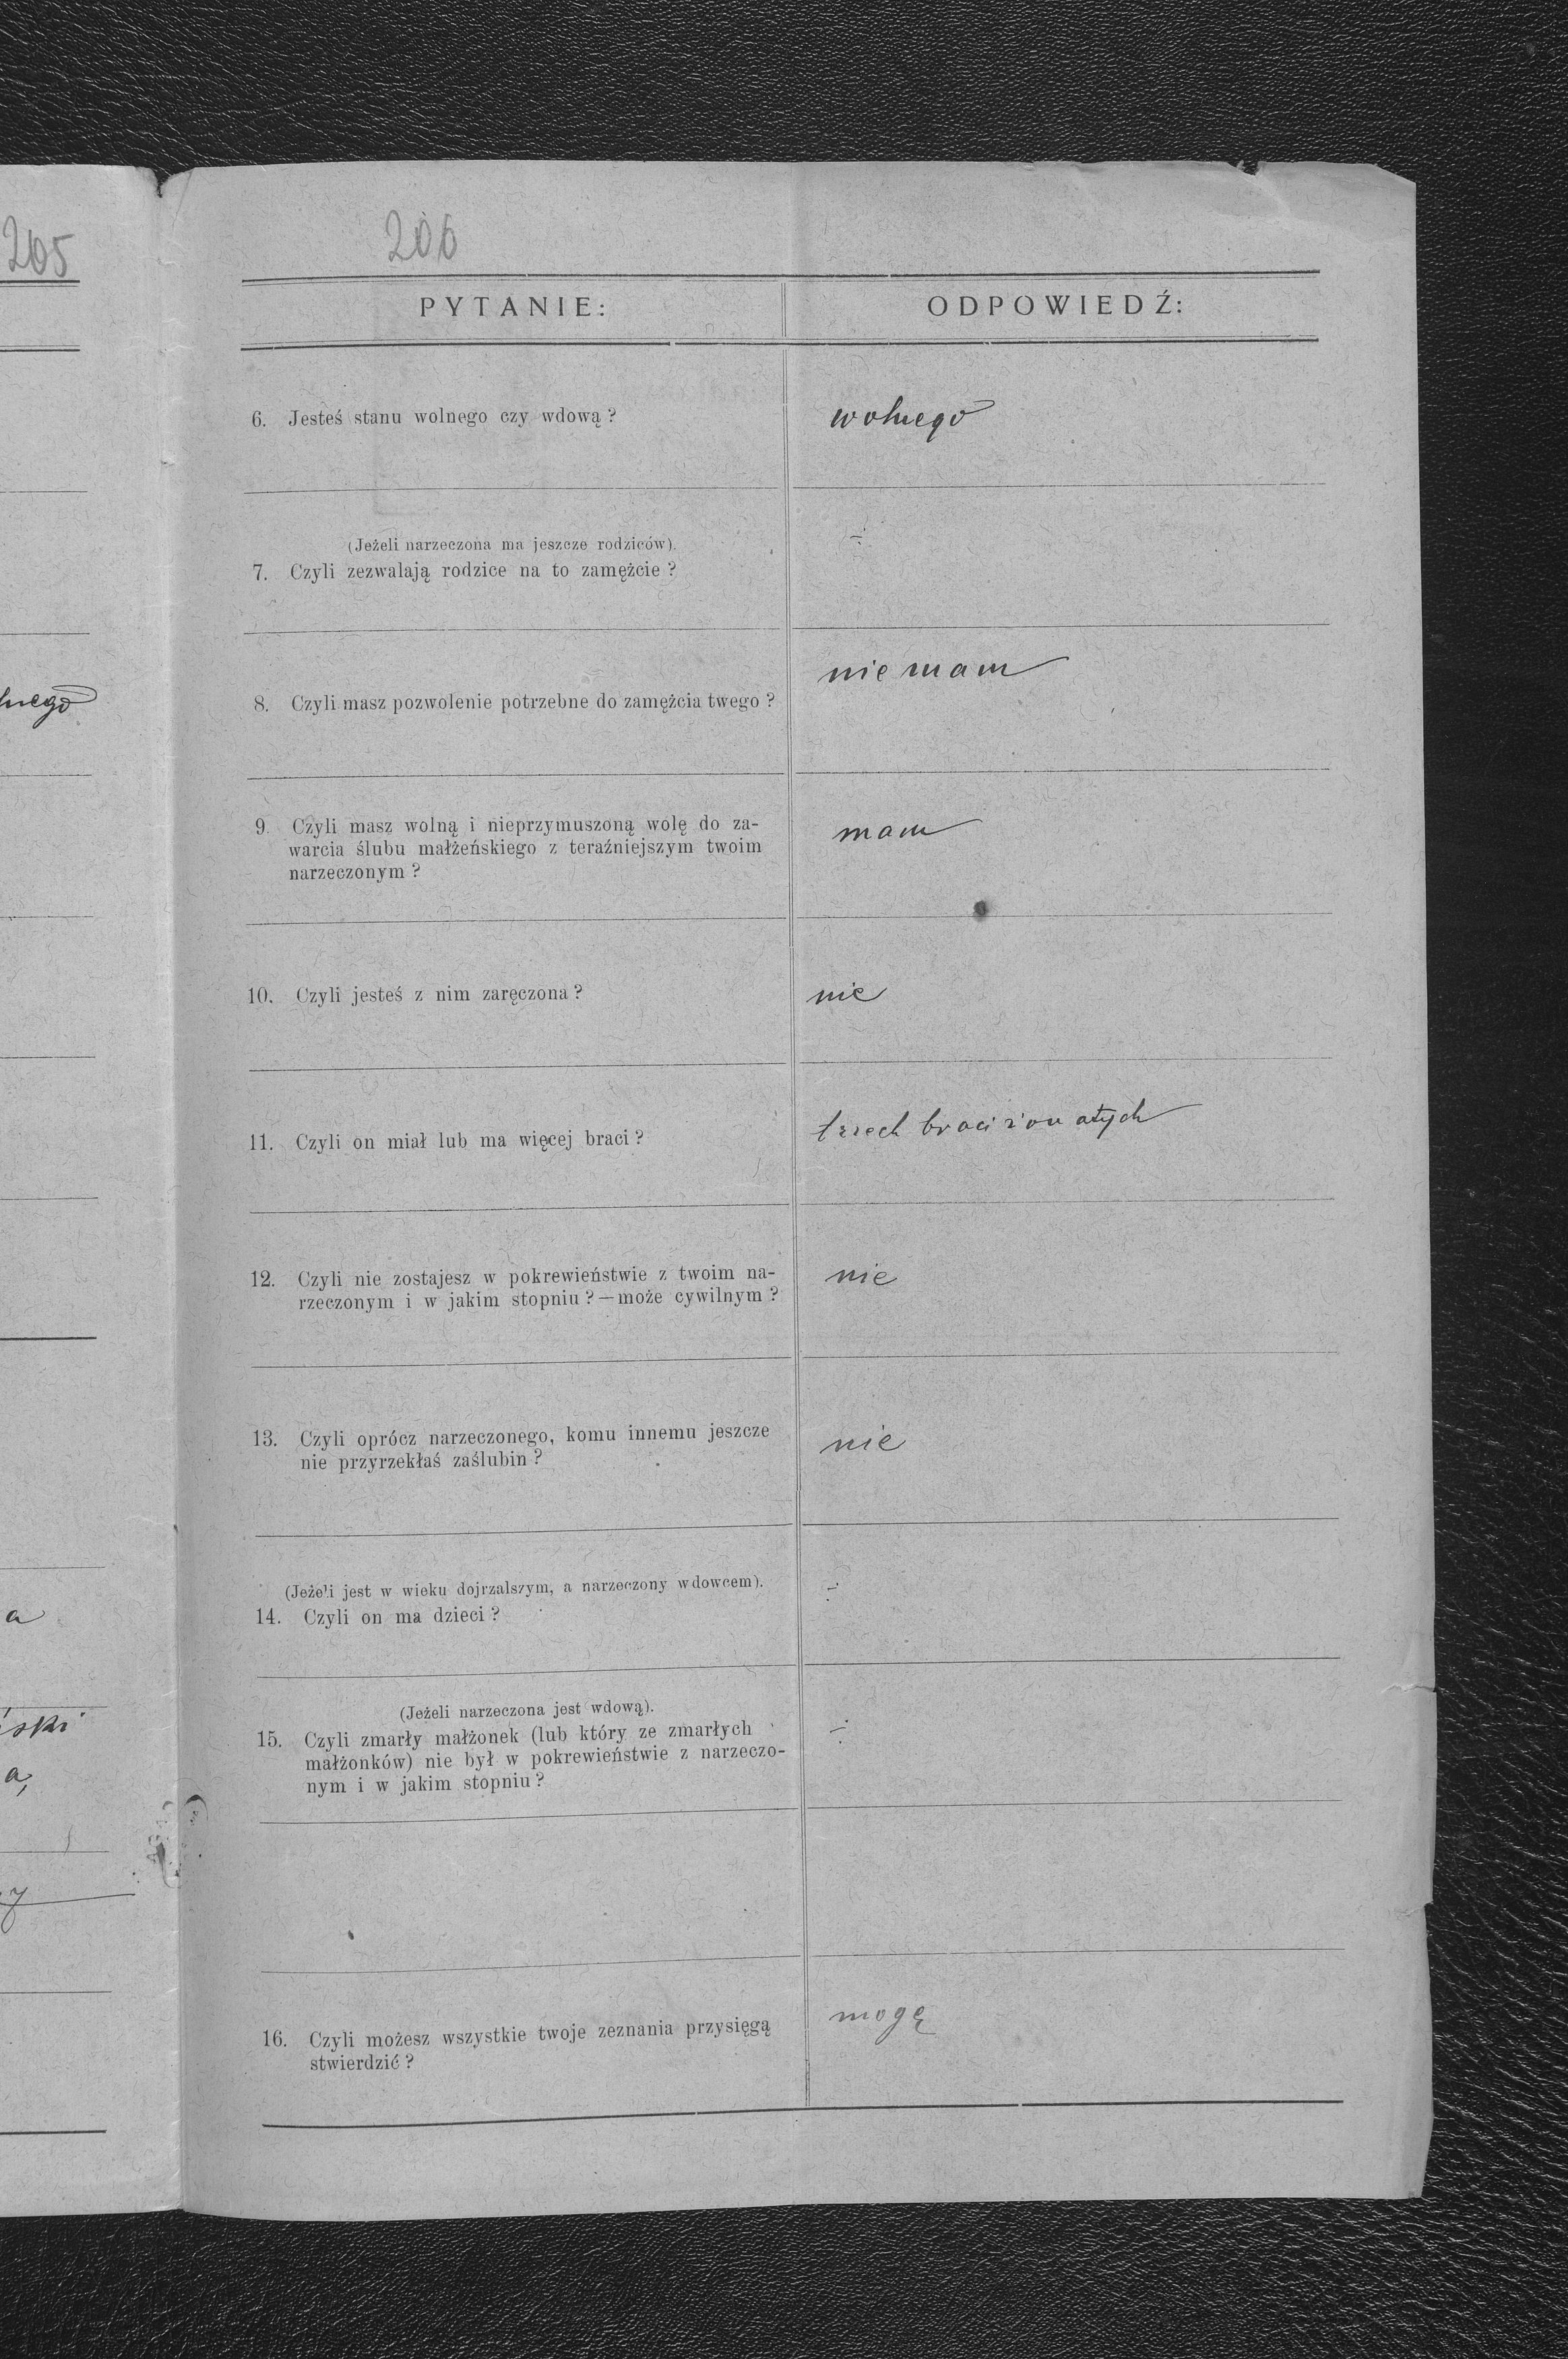 205
206
PYTANIE:
ODPOWIEDŹ:
6. Jesteś stanu wolnego czy wdową?
wolnego
(Jeżeli narzeczona ma jeszcze rodziców).
7. Czyli zezwalają rodzice na to zamężcie?
÷
8. Czyli masz pozwolenie potrzebne do zamężcia twego?
nie mam
9. Czyli masz wolną i nieprzymuszoną wolę do za-
warcia ślubu małżeńskiego z teraźniejszym twoim
narzeczonym?
mam
10. Czyli jesteś z nim zaręczona?
nie
11. Czyli on miał lub ma więcej braci?
trzech braci żonatych
12. Czyli nie zostajesz w pokrewieństwie z twoim na-
rzeczonym i w jakim stopniu?—może cywilnym?
nie
13. Czyli oprócz narzeczonego, komu innemu jeszcze
nie przyrzekłaś zaślubin?
nie
(Jeżeli jest w wieku dojrzalszym, a narzeczony wdowcem).
14. Czyli on ma dzieci?
÷
(Jeżeli narzeczona jest wdową).
15. Czyli zmarły małżonek (lub który ze zmarłych
małżonków) nie był w pokrewieństwie z narzeczo-
nym i w jakim stopniu?
÷
16. Czyli możesz wszystkie twoje zeznania przysięgą
stwierdzić?
mogę